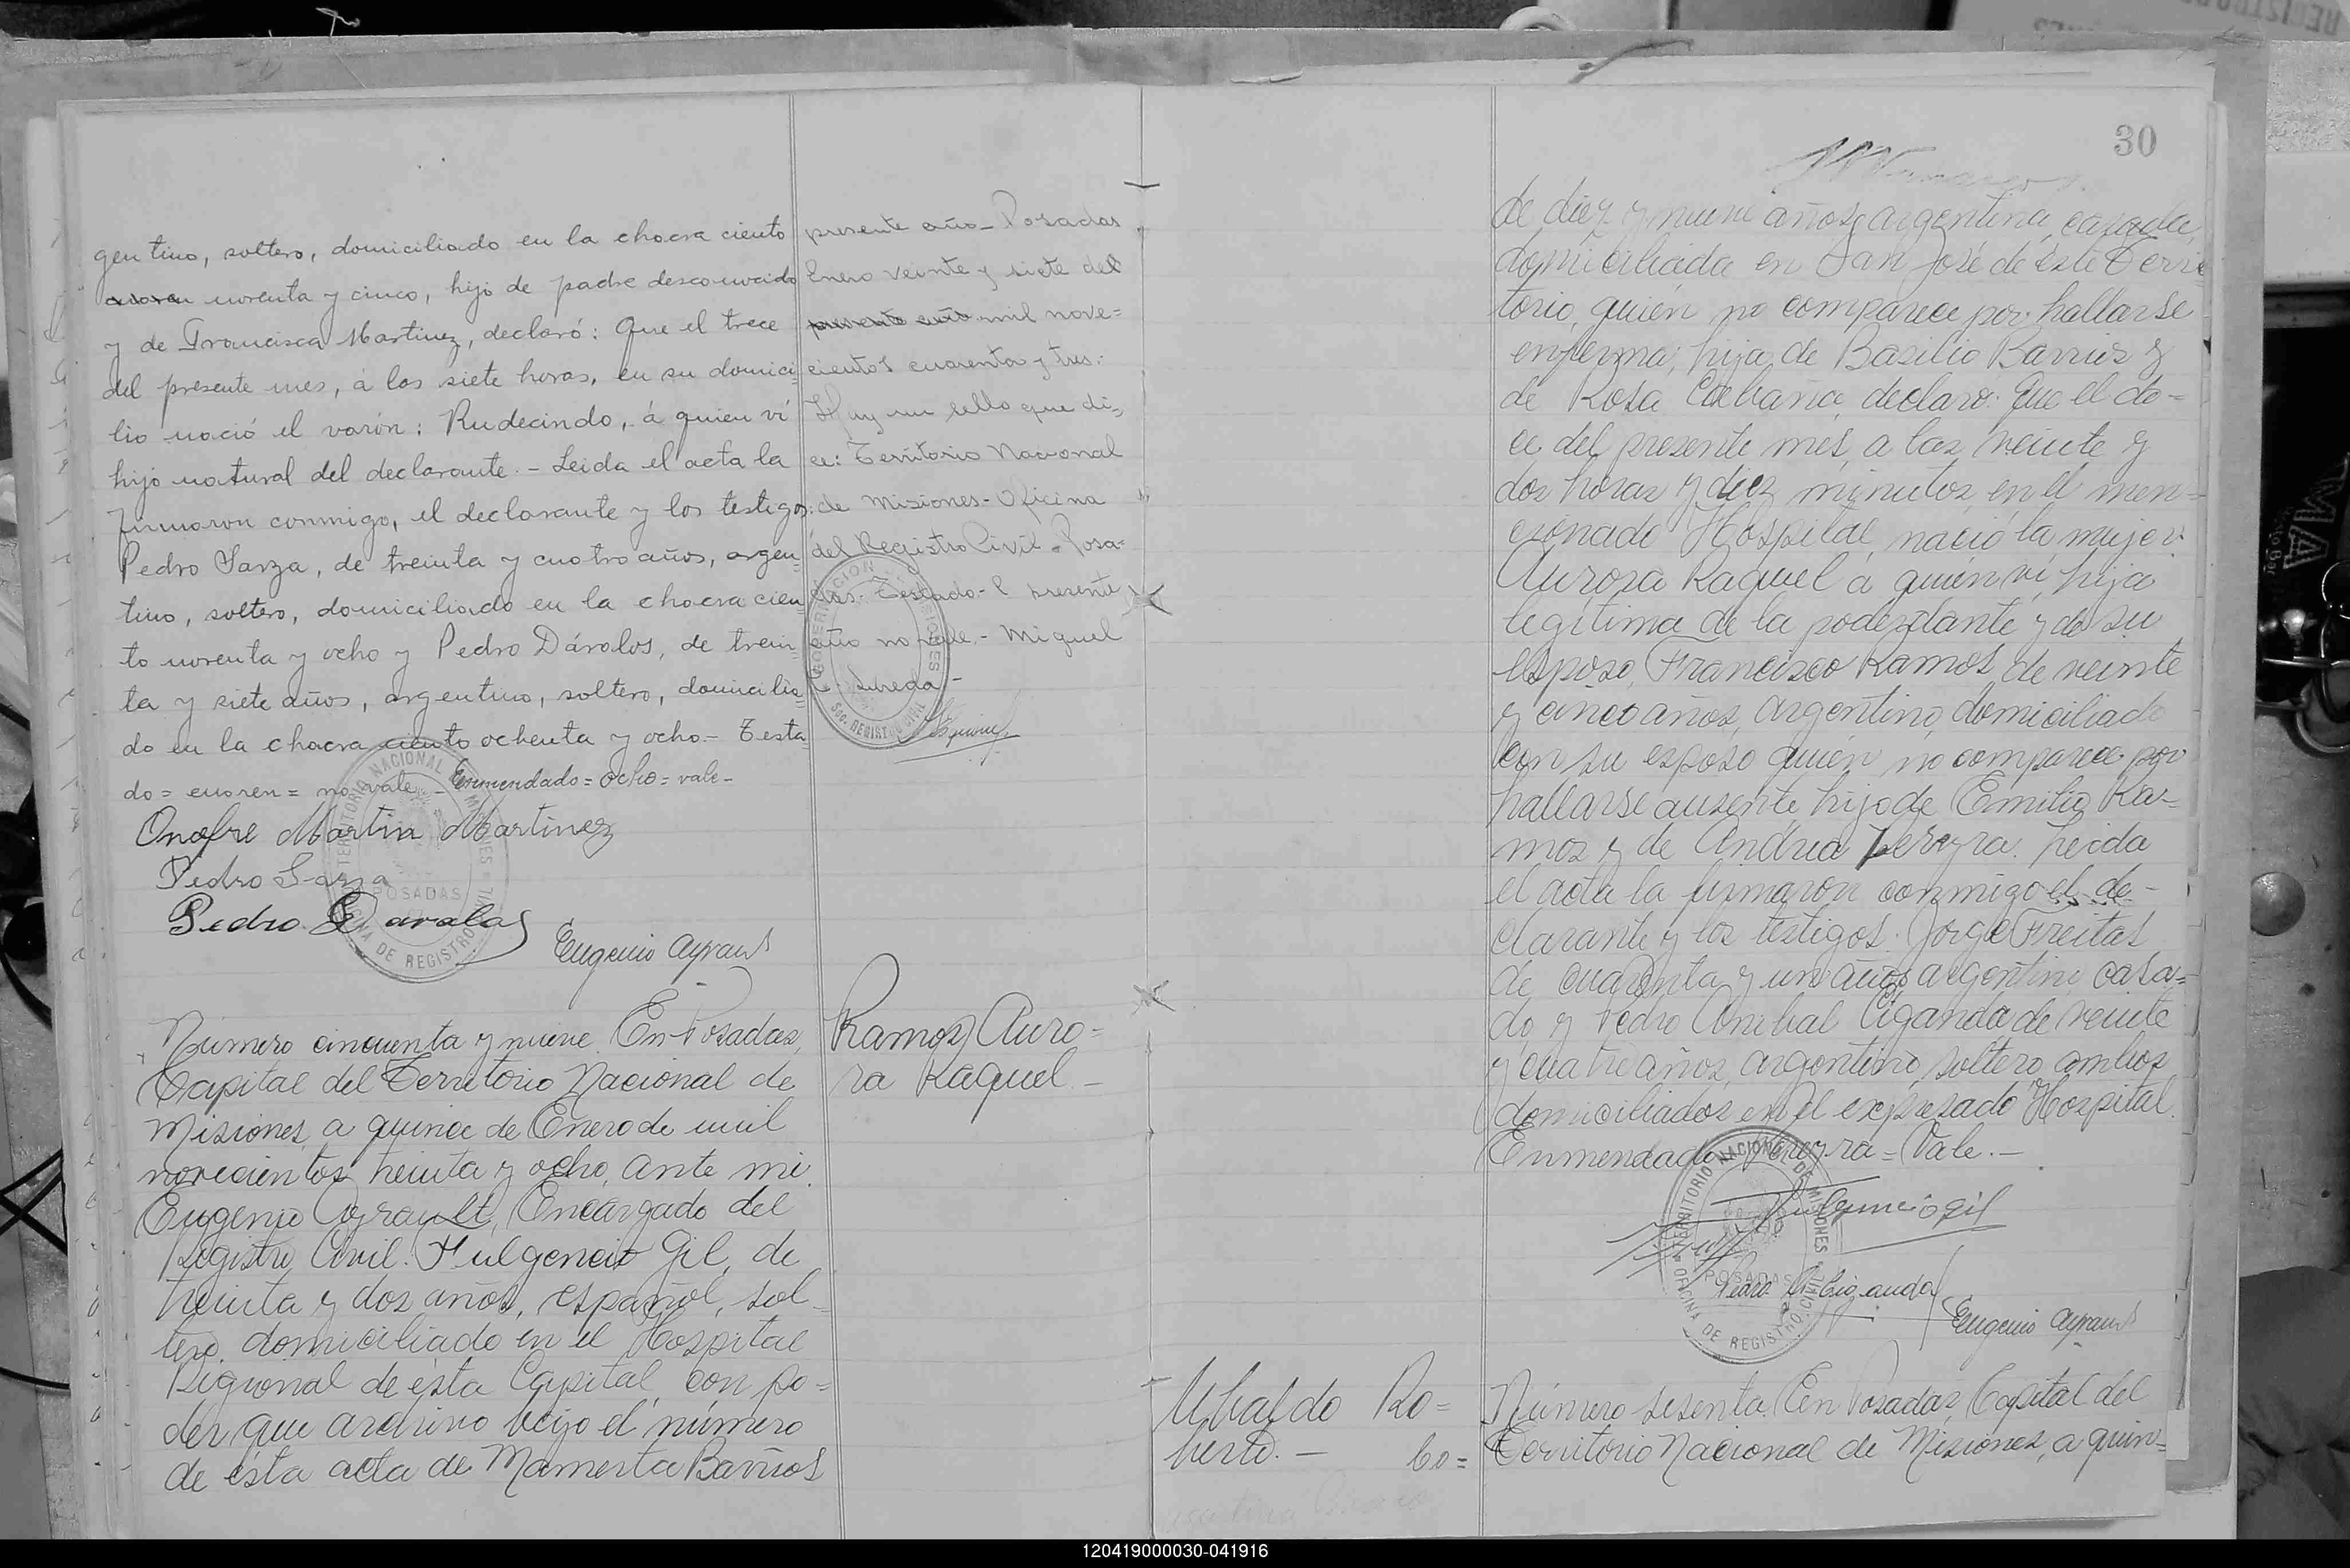 30
gentino, soltero, domiciliado en la chacra ciento
noventa y cinco, hijo de padre desconocido
y de Francisca Martinez, declaró: Que el trece
del presente mes, á las siete horas, en su domici=
lio nació el varón: Rudecindo, á quien ví
hijo natural del declarante.- Leida el acta la
firmaron conmigo, el declarante y los testigos:
Pedro Sarza, de treinta y cuatro años, argen=
tino, soltero, domiciliado en la chacra cien=
to noventa y ocho y Pedro Dárolos, de trein=
ta y siete años, argentino, soltero, domicilia=
do en la chacra ciento ochenta y ocho.- Testa=
do= enoren= no vale - Enmendado= ocho= vale-
Onofre Martin Martinez
Pedro Sarza
Pedro Davalos
Eugenio Ayrault
presente año_ Posadas
Enero veinte y siete del
presente año mil nove=
cientos cuarenta y tres.
Hay un sello que di=
ce: Territorio Nacional
de Misiones- Oficina
del Registro Civil - Posa-
das. Testado- presente
año no vale.- Miguel
TERRITORIO NACIONAL DE MISIONES
POSADAS
OFICINA DE REGISTRO CIVIL
GOBERNACION MISIONES
Sec. REGISTRO CIVIL
Número cincuenta y nueve. En Posadas,
Capital del Territorio Nacional de
Misiones, a quince de Enero de mil
novecientos treinta y ocho, ante mi
Eugenio Ayrault, Encargado del
Registro Civil. Fulgencio Gil, de
treinta y dos años, español, sol-
tero, domiciliado en el Hospital
Regional de ésta Capital, con po=
der que archivo bajo el número
de ésta acta de Mamerta Barrios
Ramos Auro=
ra Raquel_
de diez y nueve años, argentina, casada,
domiciliada en San José de éste Terri
torio, quién no comparece por hallarse
enferma; hija de Basilio Barrios y
de Rosa Cabaña, declaro: Que el do-
ce del presente mes, a las veinte y
dos horas y diez minutos, en el men=
cionado Hospital, nació la mujer:
Aurora Raquel á quién ví, hija
legítima de la poderdante y de su
esposo, Francisco Ramos, de veinte
y cinco años, argentino, domiciliado
con su esposo quién no comparece por
hallarse ausente, hijo de Emilio Ra-
mos y de Andrea Pereyra. Leida
el acta la firmaron conmigo el de-
clarante y los testigos: Jorge Freitas
de cuarenta y un años argentino casa=
do, y Pedro Anibal Ciganda de veinte
y cuatro años, argentino, soltero, ambos
domiciliados en el expresado Hospital.
Enmendado Pereyra = Vale.-
Fulgencio Gil
Pedro A. Ciganda
Eugenio Ayrault
TERRITORIO NACIONAL DE MISIONES
POSADAS
OFICINA DE REGISTRO CIVIL
Ubaldo Ro=
berto.-
Co=
Número sesenta. En Posadas, Capital del
Territorio Nacional de Misiones, a quin=
120419000030-041916